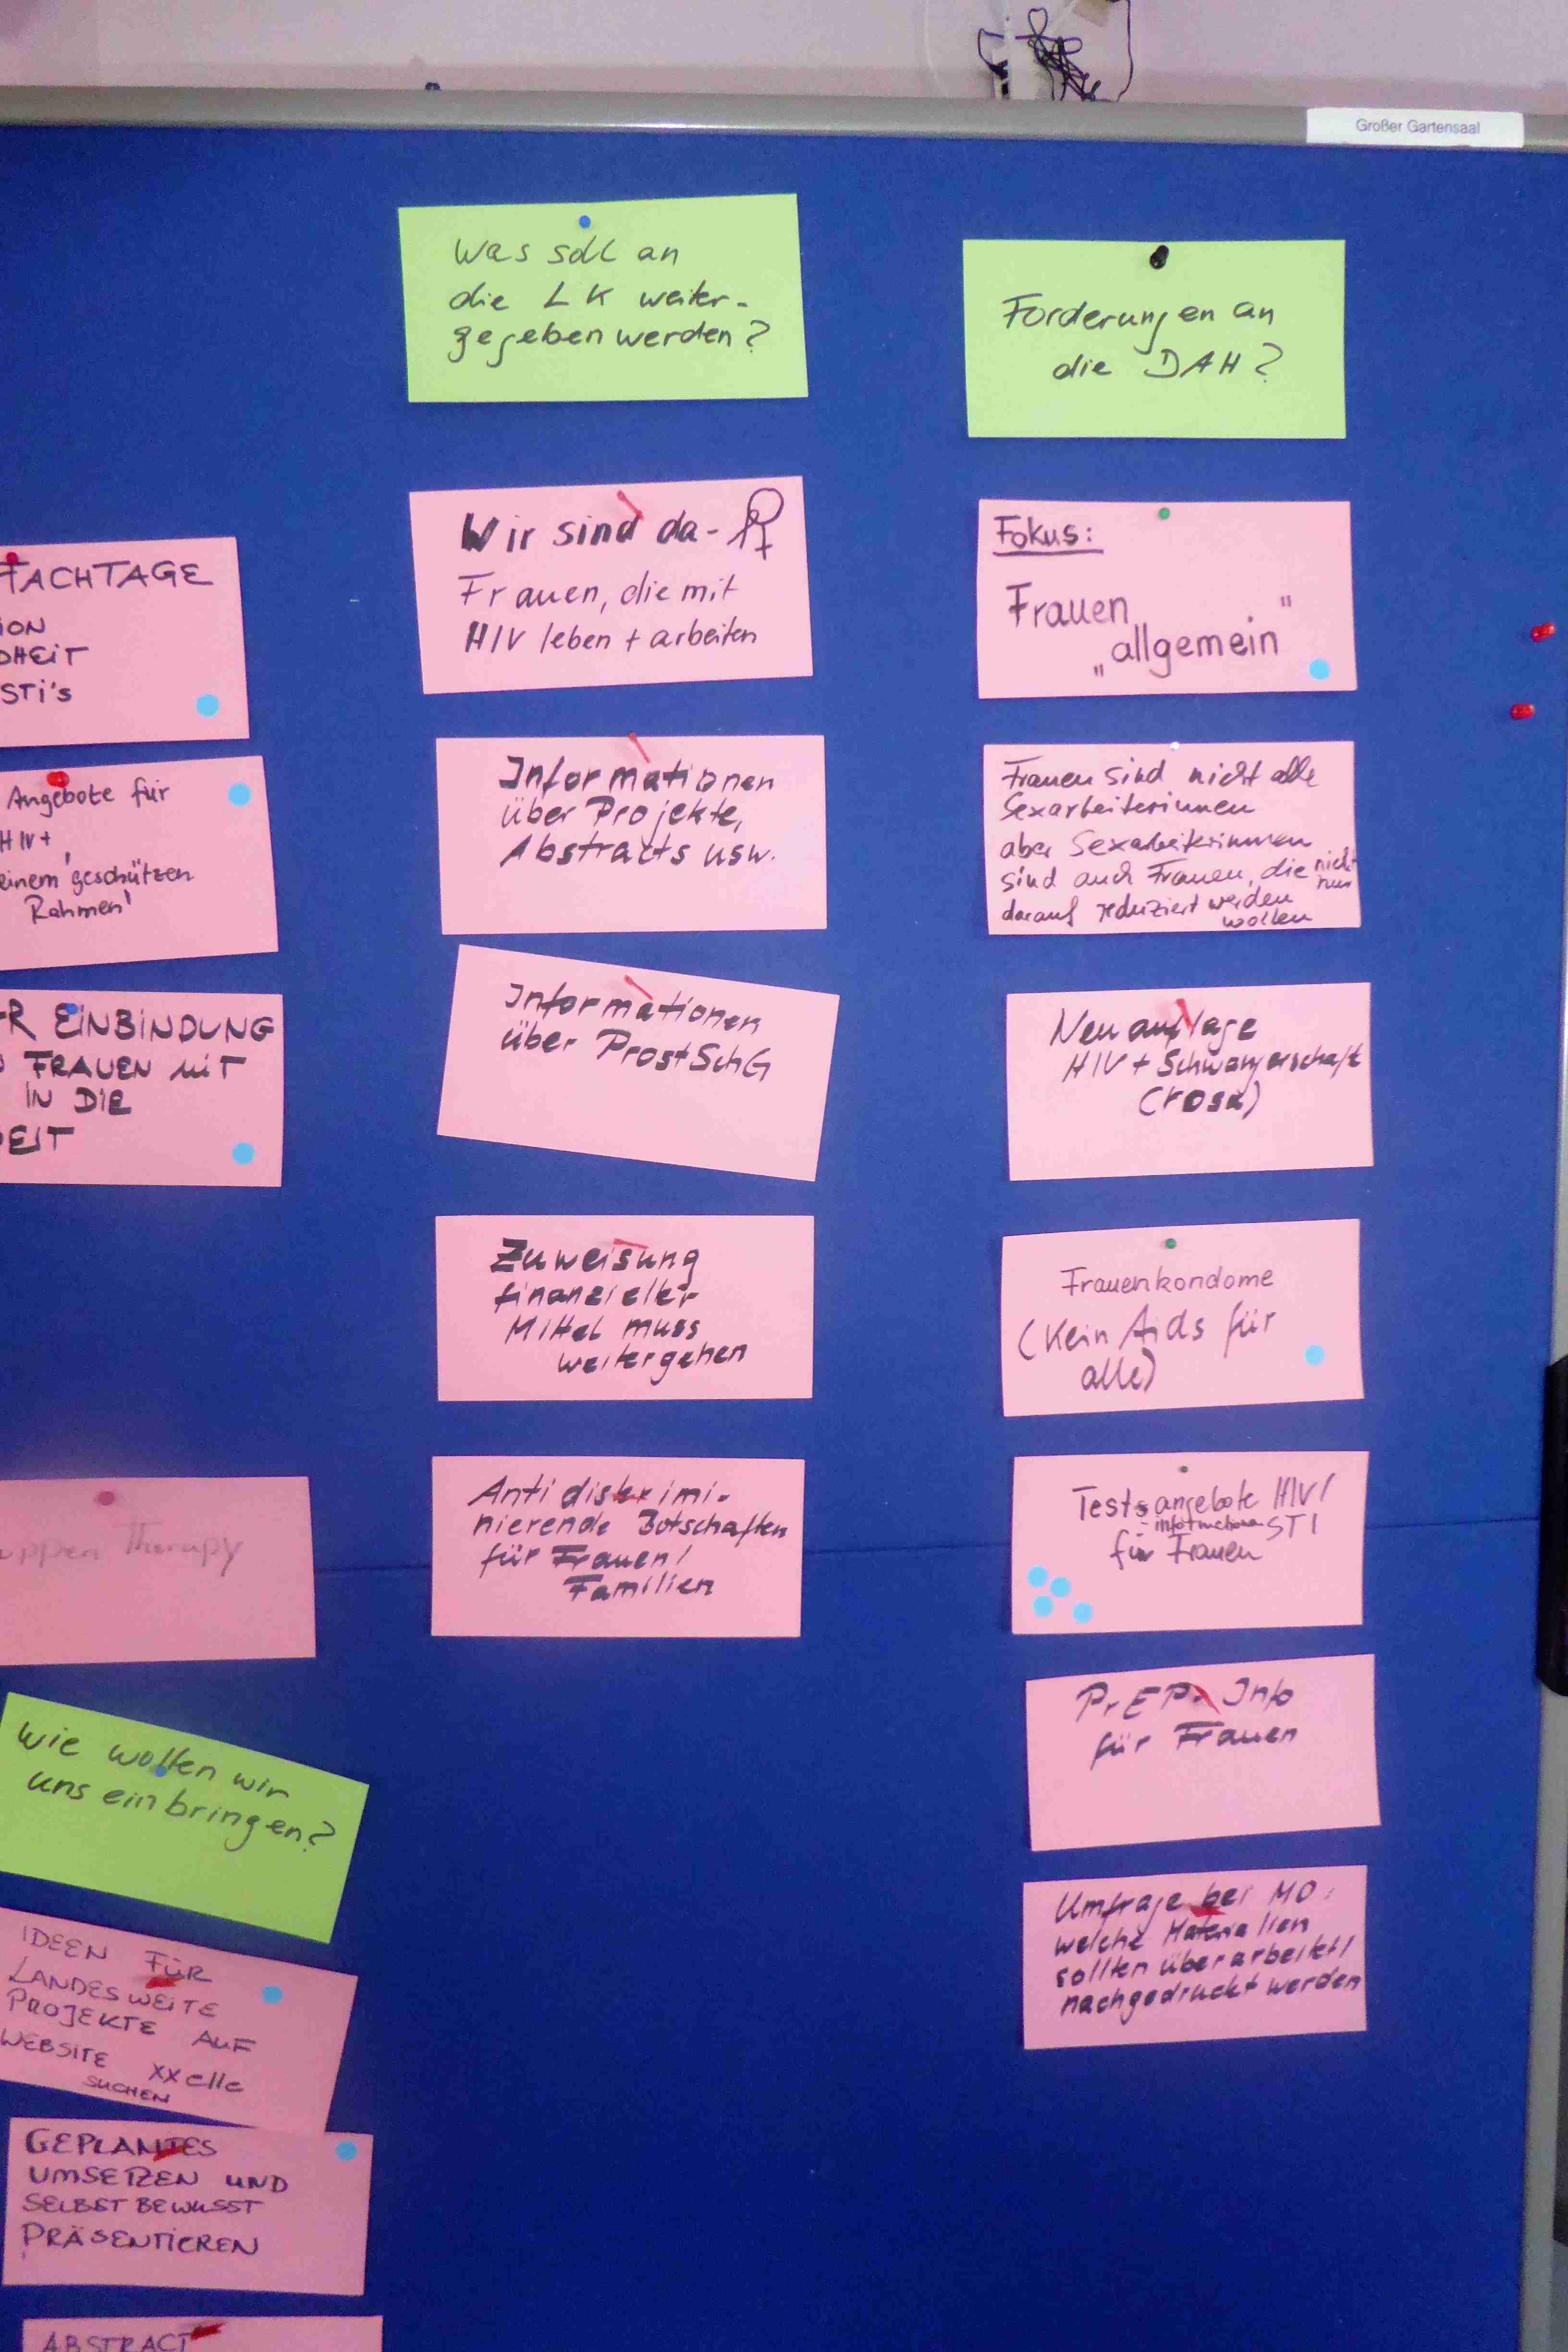 Großer Gartensaal
FACHTAGE
STi's
Angebote für
HIV+
einem geschützen
Rahmen'
EINBINDUNG
FRAUEN MIT
IN DIE
Therapy
Wie wollen wir
uns einbringen?
IDEEN FÜR
LANDESWEITE
PROJEKTE AUF
WEBSITE xxelle
SUCHEN
GEPLANTES
UMSETZEN UND
SELBSTBEWUSST
PRÄSENTIEREN
ABSTRACT
Was soll an
die LK weiter-
gegeben werden?
Wir sind da-
Frauen, die mit
HIV leben + arbeiten
Informationen
über Projekte,
Abstracts usw.
Informationen
über ProstSchG
Zuweisung
finanzieller
Mittel muss
weitergehen
Antidiskrimi-
nierende Botschaften
für Frauen/
Familien
Forderungen an
die DAH?
Fokus:
Frauen
„allgemein"
Frauen sind nicht alle
Sexarbeiterinnen
aber Sexarbeiterinnen
sind auch Frauen, die nicht nur
darauf reduziert werden
wollen
Neuauflage
HIV + Schwangerschaft
(rosa)
Frauenkondome
(Kein Aids für
alle)
Tests angebote HIV/
-informationen STI
für Frauen
PrEP-Info
für Frauen
Umfrage bei MO:
welche Materialien
sollten überarbeitet/
nachgedruckt werden